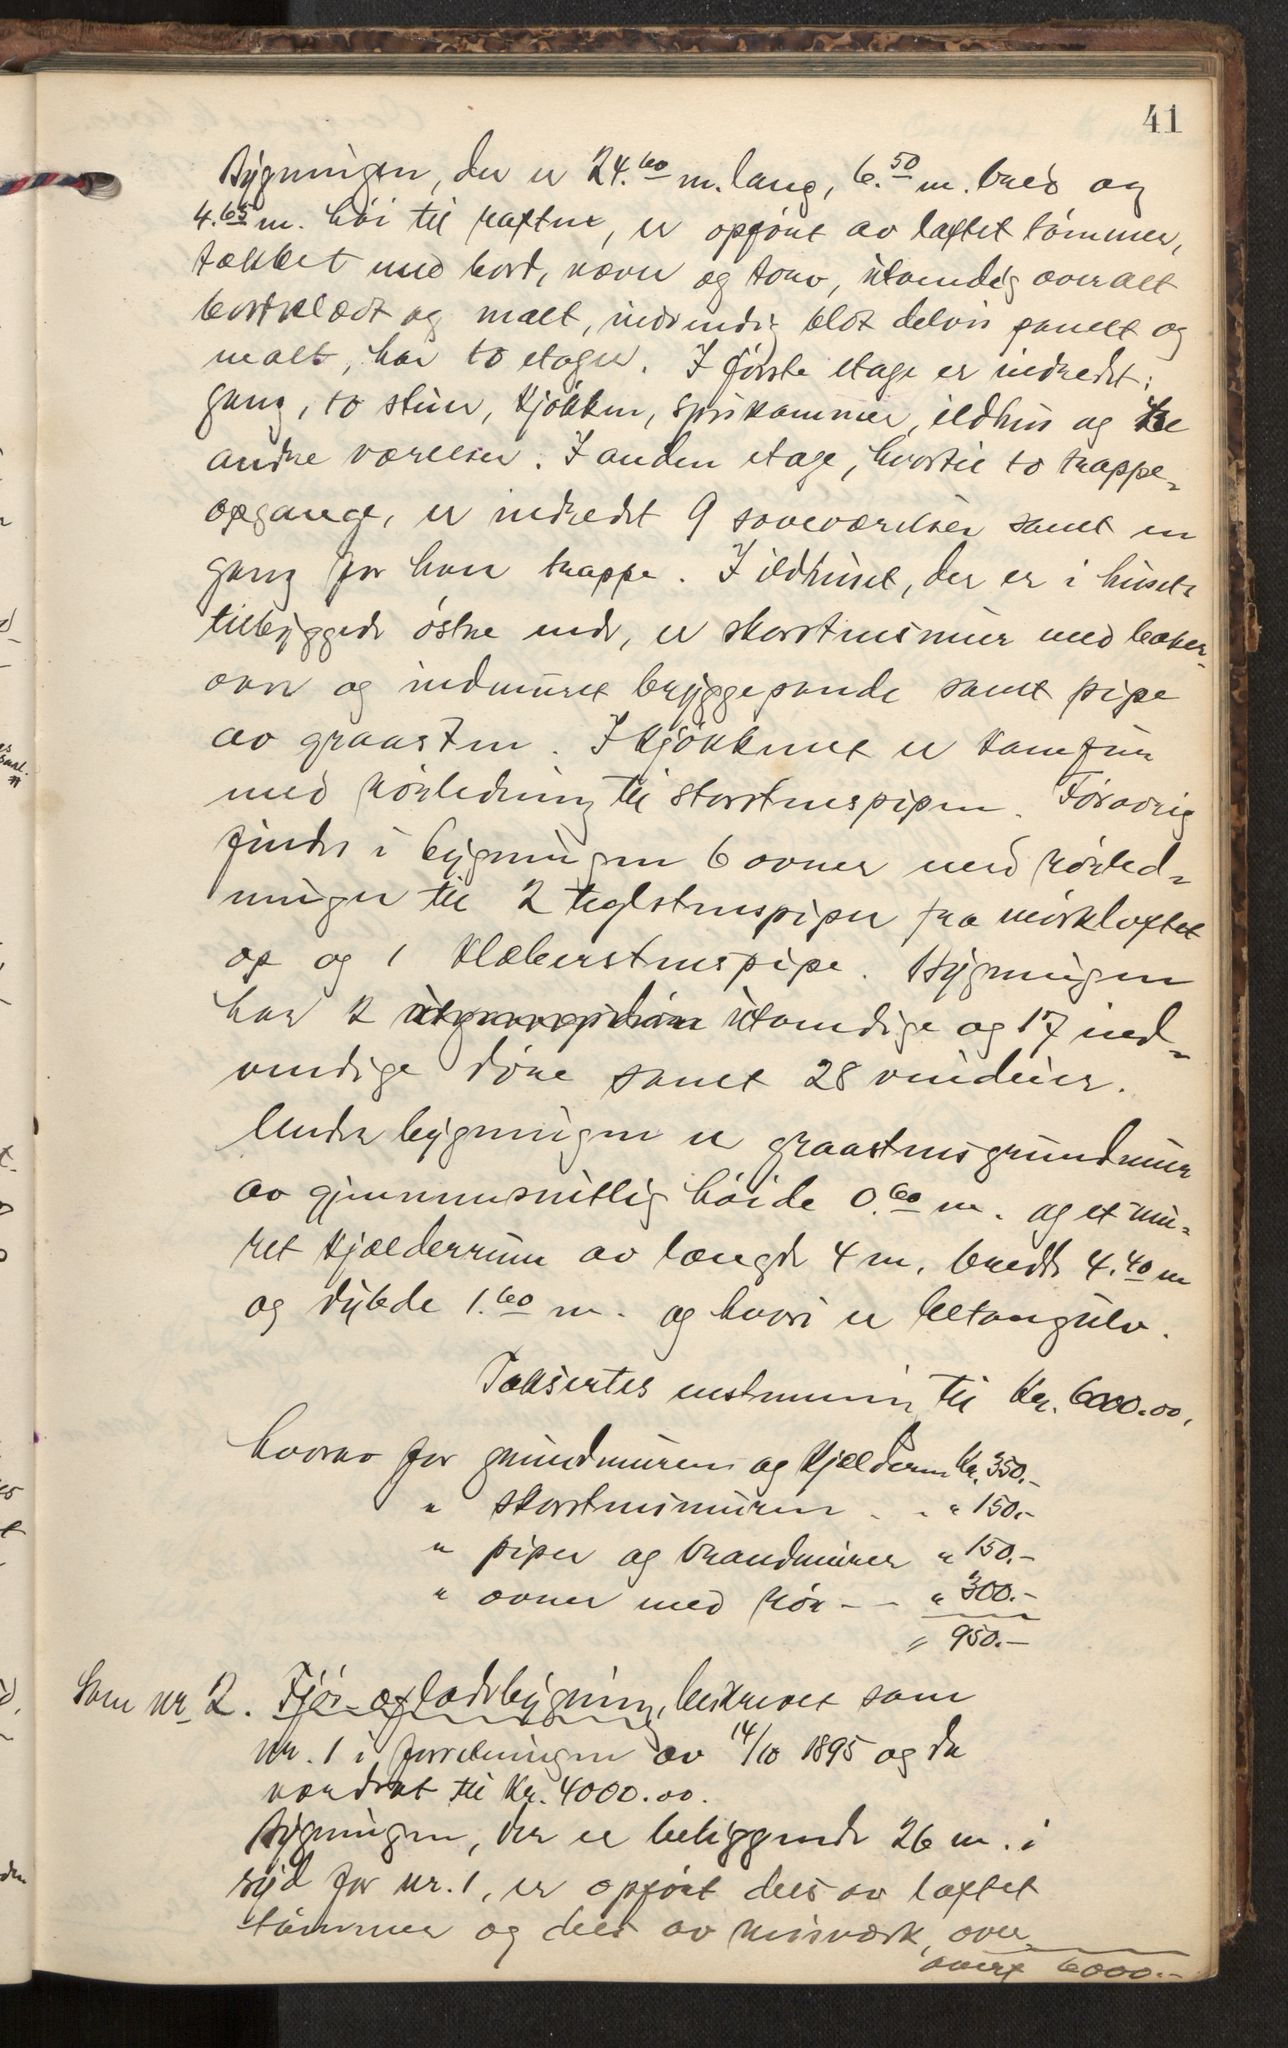 41
Bygningen, der er 24.60 m. lang, 6.50 m. bred og
4.65 m. høi til raftet, er opført av laftet tømmer,
tækket med bord, næver og torv, utvendig overalt
bordklædt og malt, indvendig blot delvis panelt og
malt, har to etager. I første etage er indredet:
gang, to stuer, kjøkken, spiskammer, ildhus og tre
andre værelser. I anden etage, hvortil to trappe-
opgange, er indredet 9 soveværelser samt en
gang for hver trappe. I ildhuset, der er i husets
tilbyggede østre ende, er skorstensmur med baker-
ovn og indmuret bryggepande samt pipe
av graasten. I kjøkkenet er komfur
med rørledning til skorstenspipen. Forøvrig
findes i bygningen 6 ovner med rørled-
ninger til 2 teglstenspiper fra mørkloftet
op og 1 klæberstenspipe. Bygningen
har 2 utvendige og 17 ind-
vendige døre samt 28 vinduer.
Under bygningen er graastensgrundmur
av gjennemsnitlig høide 0.60 m. og et mu-
ret kjælderrum av længde 4 m, bredde 4.40 m
og dybde 1.60 m. og hvori er betongulv.
Taksertes enstemmig til Kr. 6000.00,
hvorav for grundmuren og kjælderen Kr. 350.-
" skorstensmuren - - " 150.-
" piper og brandmurer " 150.-
" ovner med rør - - " 300.-
" 950.-
Som nr. 2. Fjøs- og ladebygning, beskrevet som
nr. 1 i forretningen av 14/10 1895 og da
værdsat til Kr. 4000.00.
Bygningen, der er beliggende 26 m. i
syd for nr. 1, er opført dels av laftet
tømmer og dels av reisværk, over-
overf 6000.-